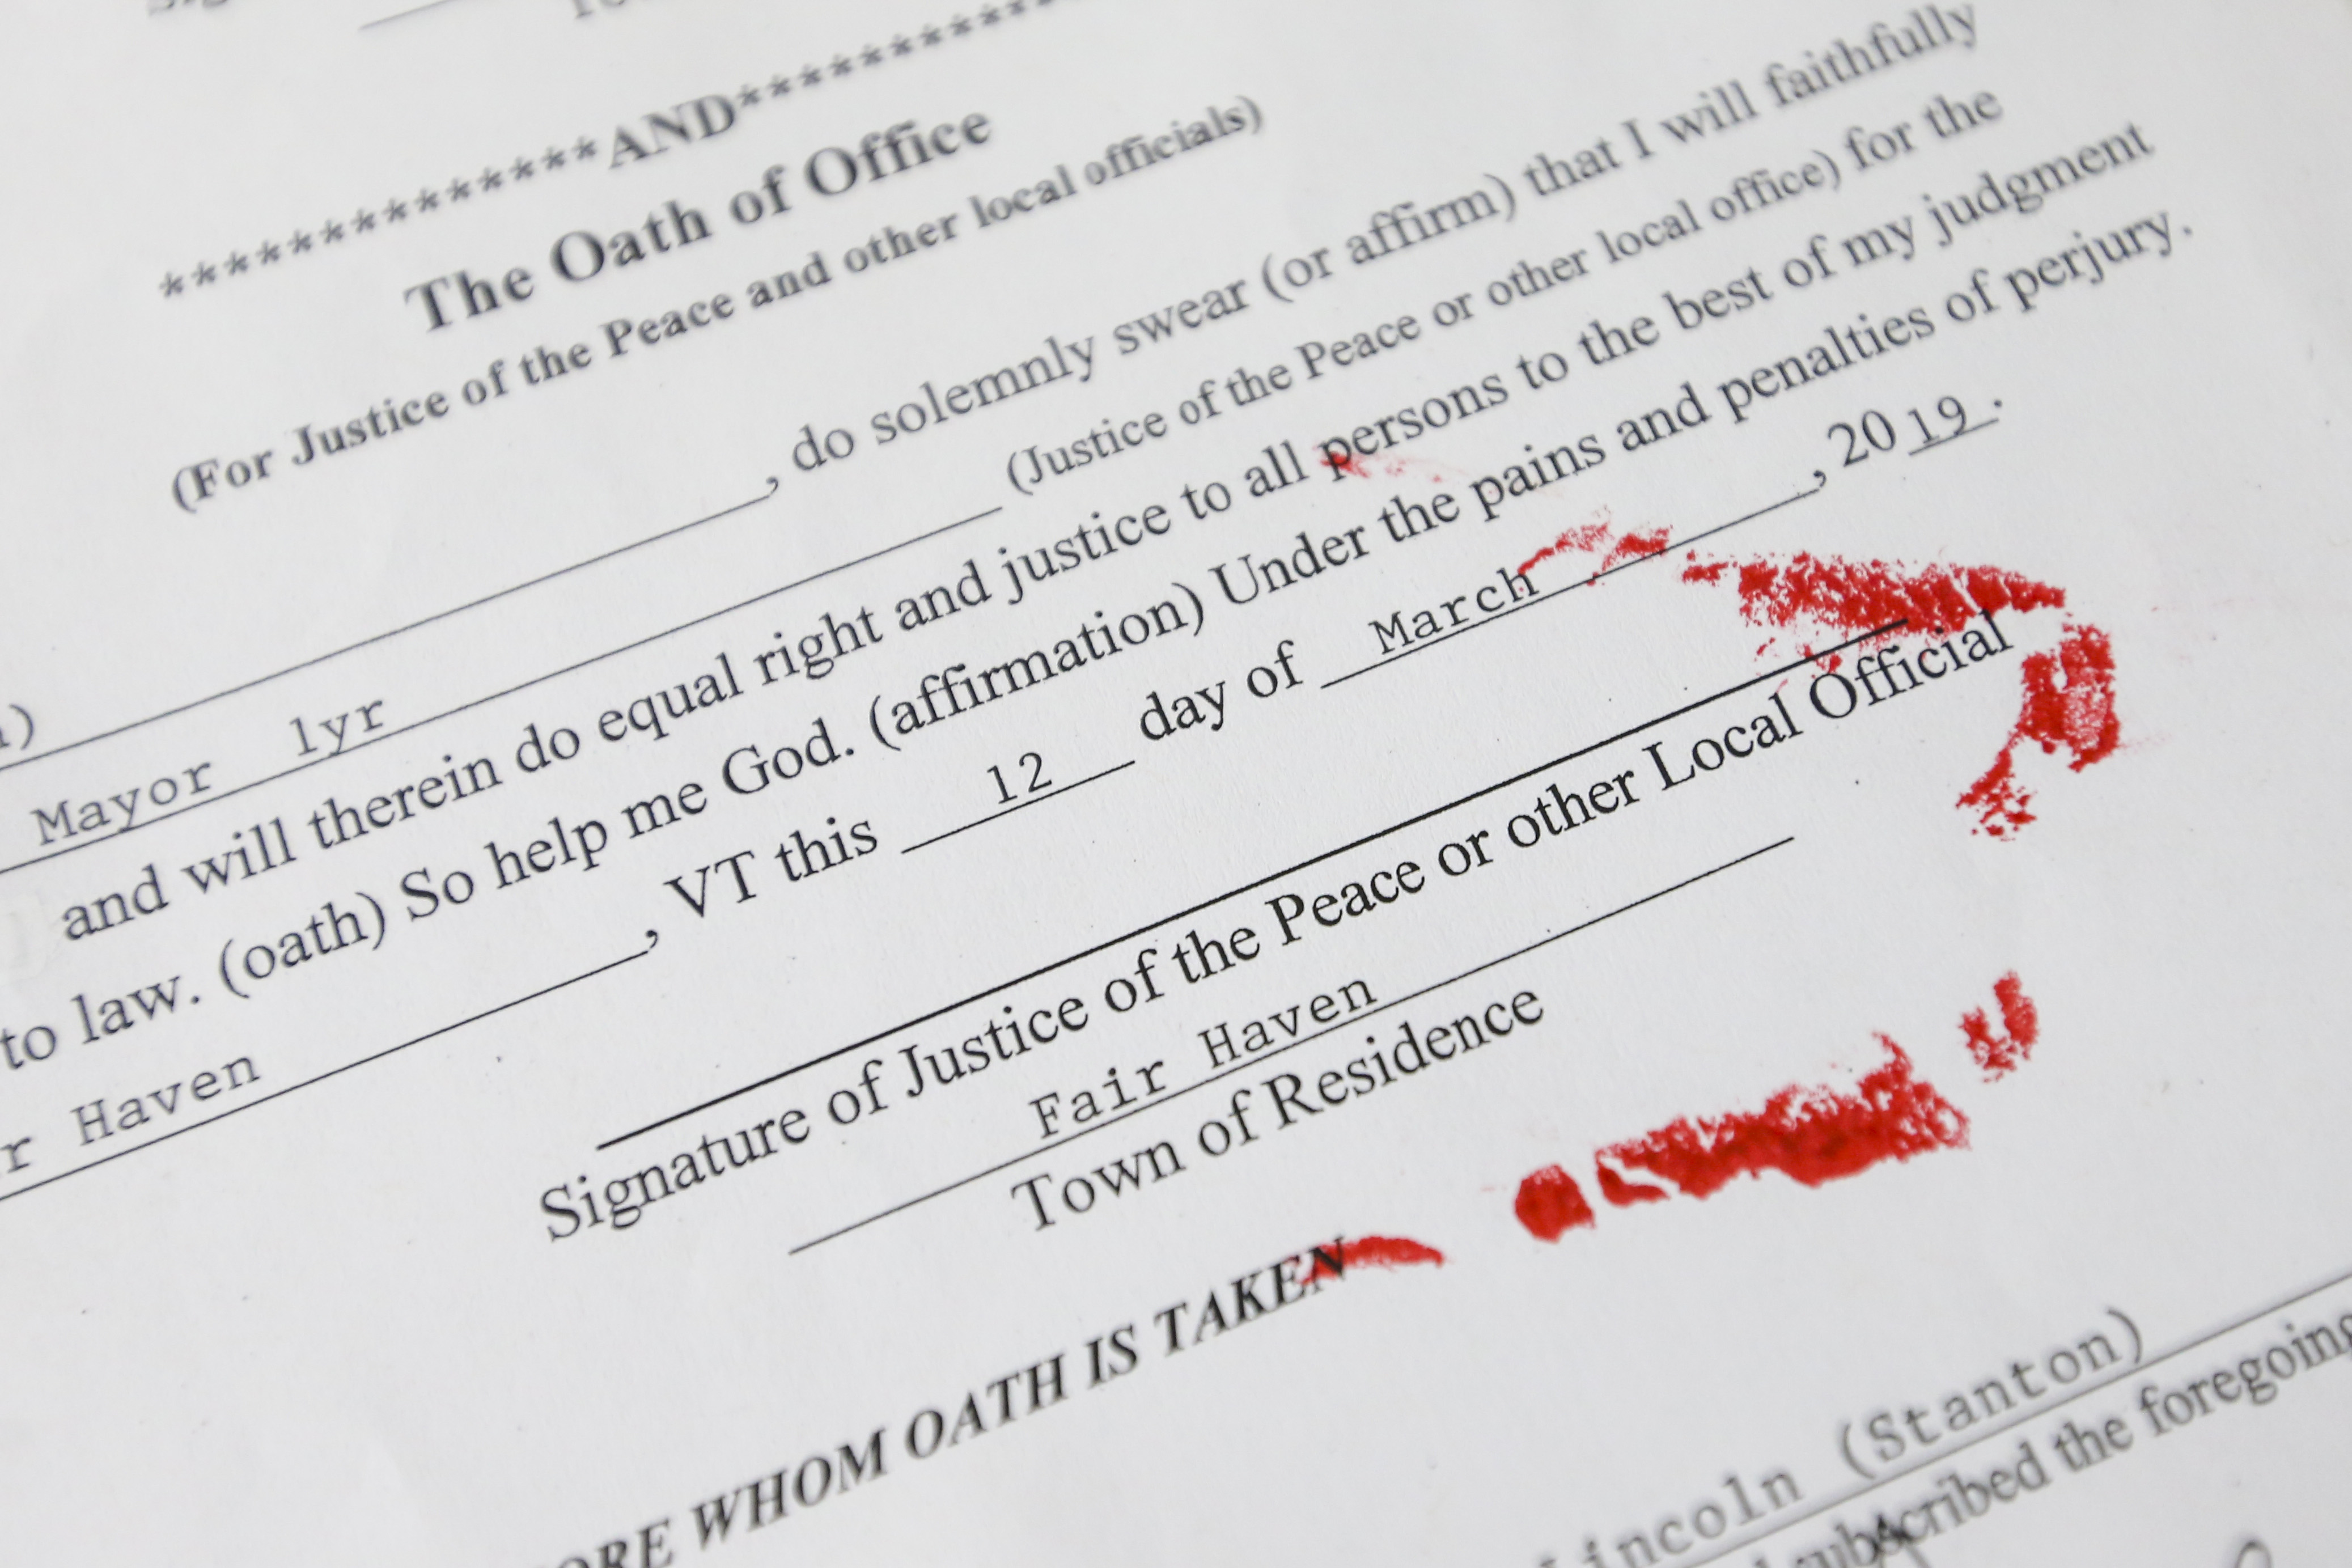 **************AND**************
The Oath of Office
(For Justice of the Peace and other local officials)
, do solemnly swear (or affirm) that I will faithfully
Mayor 1yr (Justice of the Peace or other local office) for the
and will therein do equal right and justice to all persons to the best of my judgment
to law. (oath) So help me God. (affirmation) Under the pains and penalties of perjury.
Haven, VT this 12 day of March, 2019.
Signature of Justice of the Peace or other Local Official
Fair Haven
Town of Residence
WHOM OATH IS TAKEN
(Stanton)
the foregoing